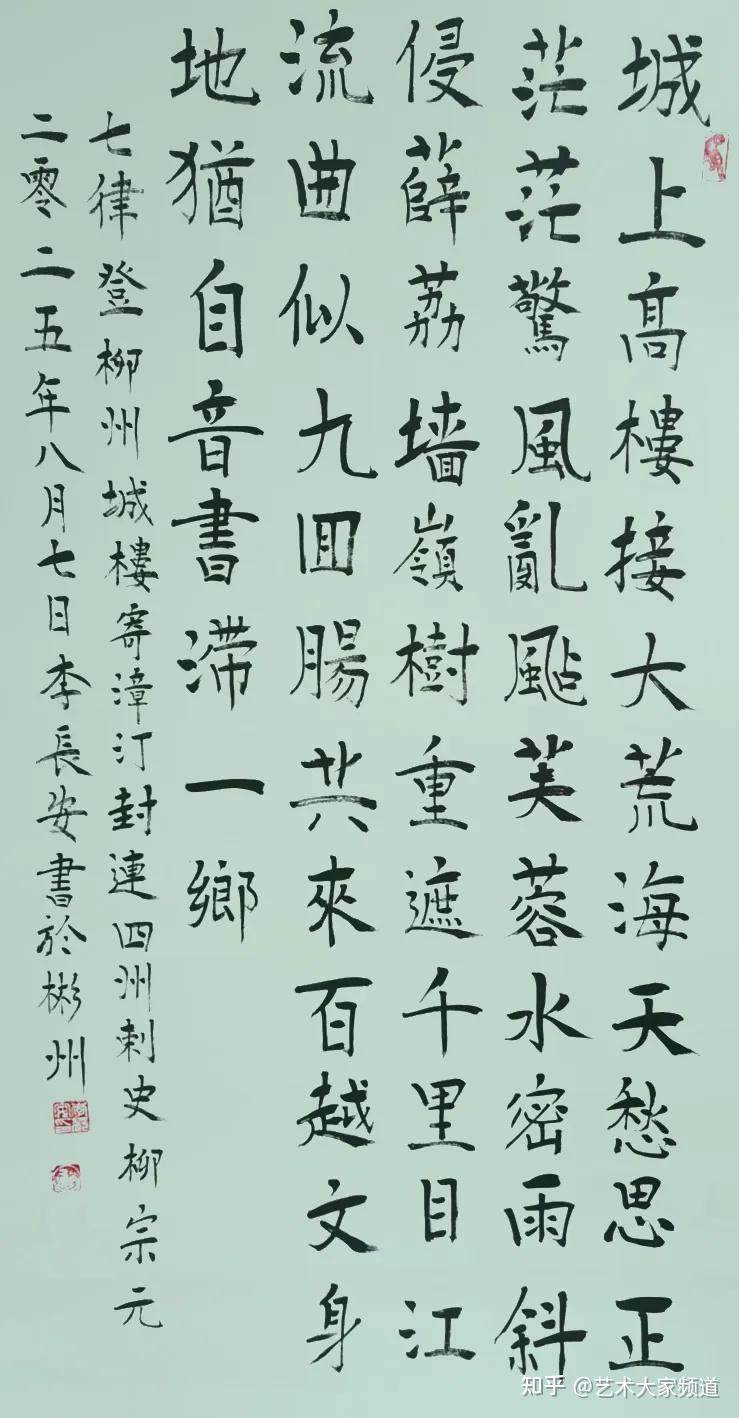 城上高樓接大荒海天愁思正
茫茫驚風亂颭芙蓉水密雨斜
侵薜荔墙嶺樹重遮千里目江
流曲似九回腸共來百越文身
地猶自音書滞一鄉
七律登柳州城樓寄漳汀封連四州刺史柳宗元
二零二五年八月七日李長安書於彬州
知乎 @艺术大家频道